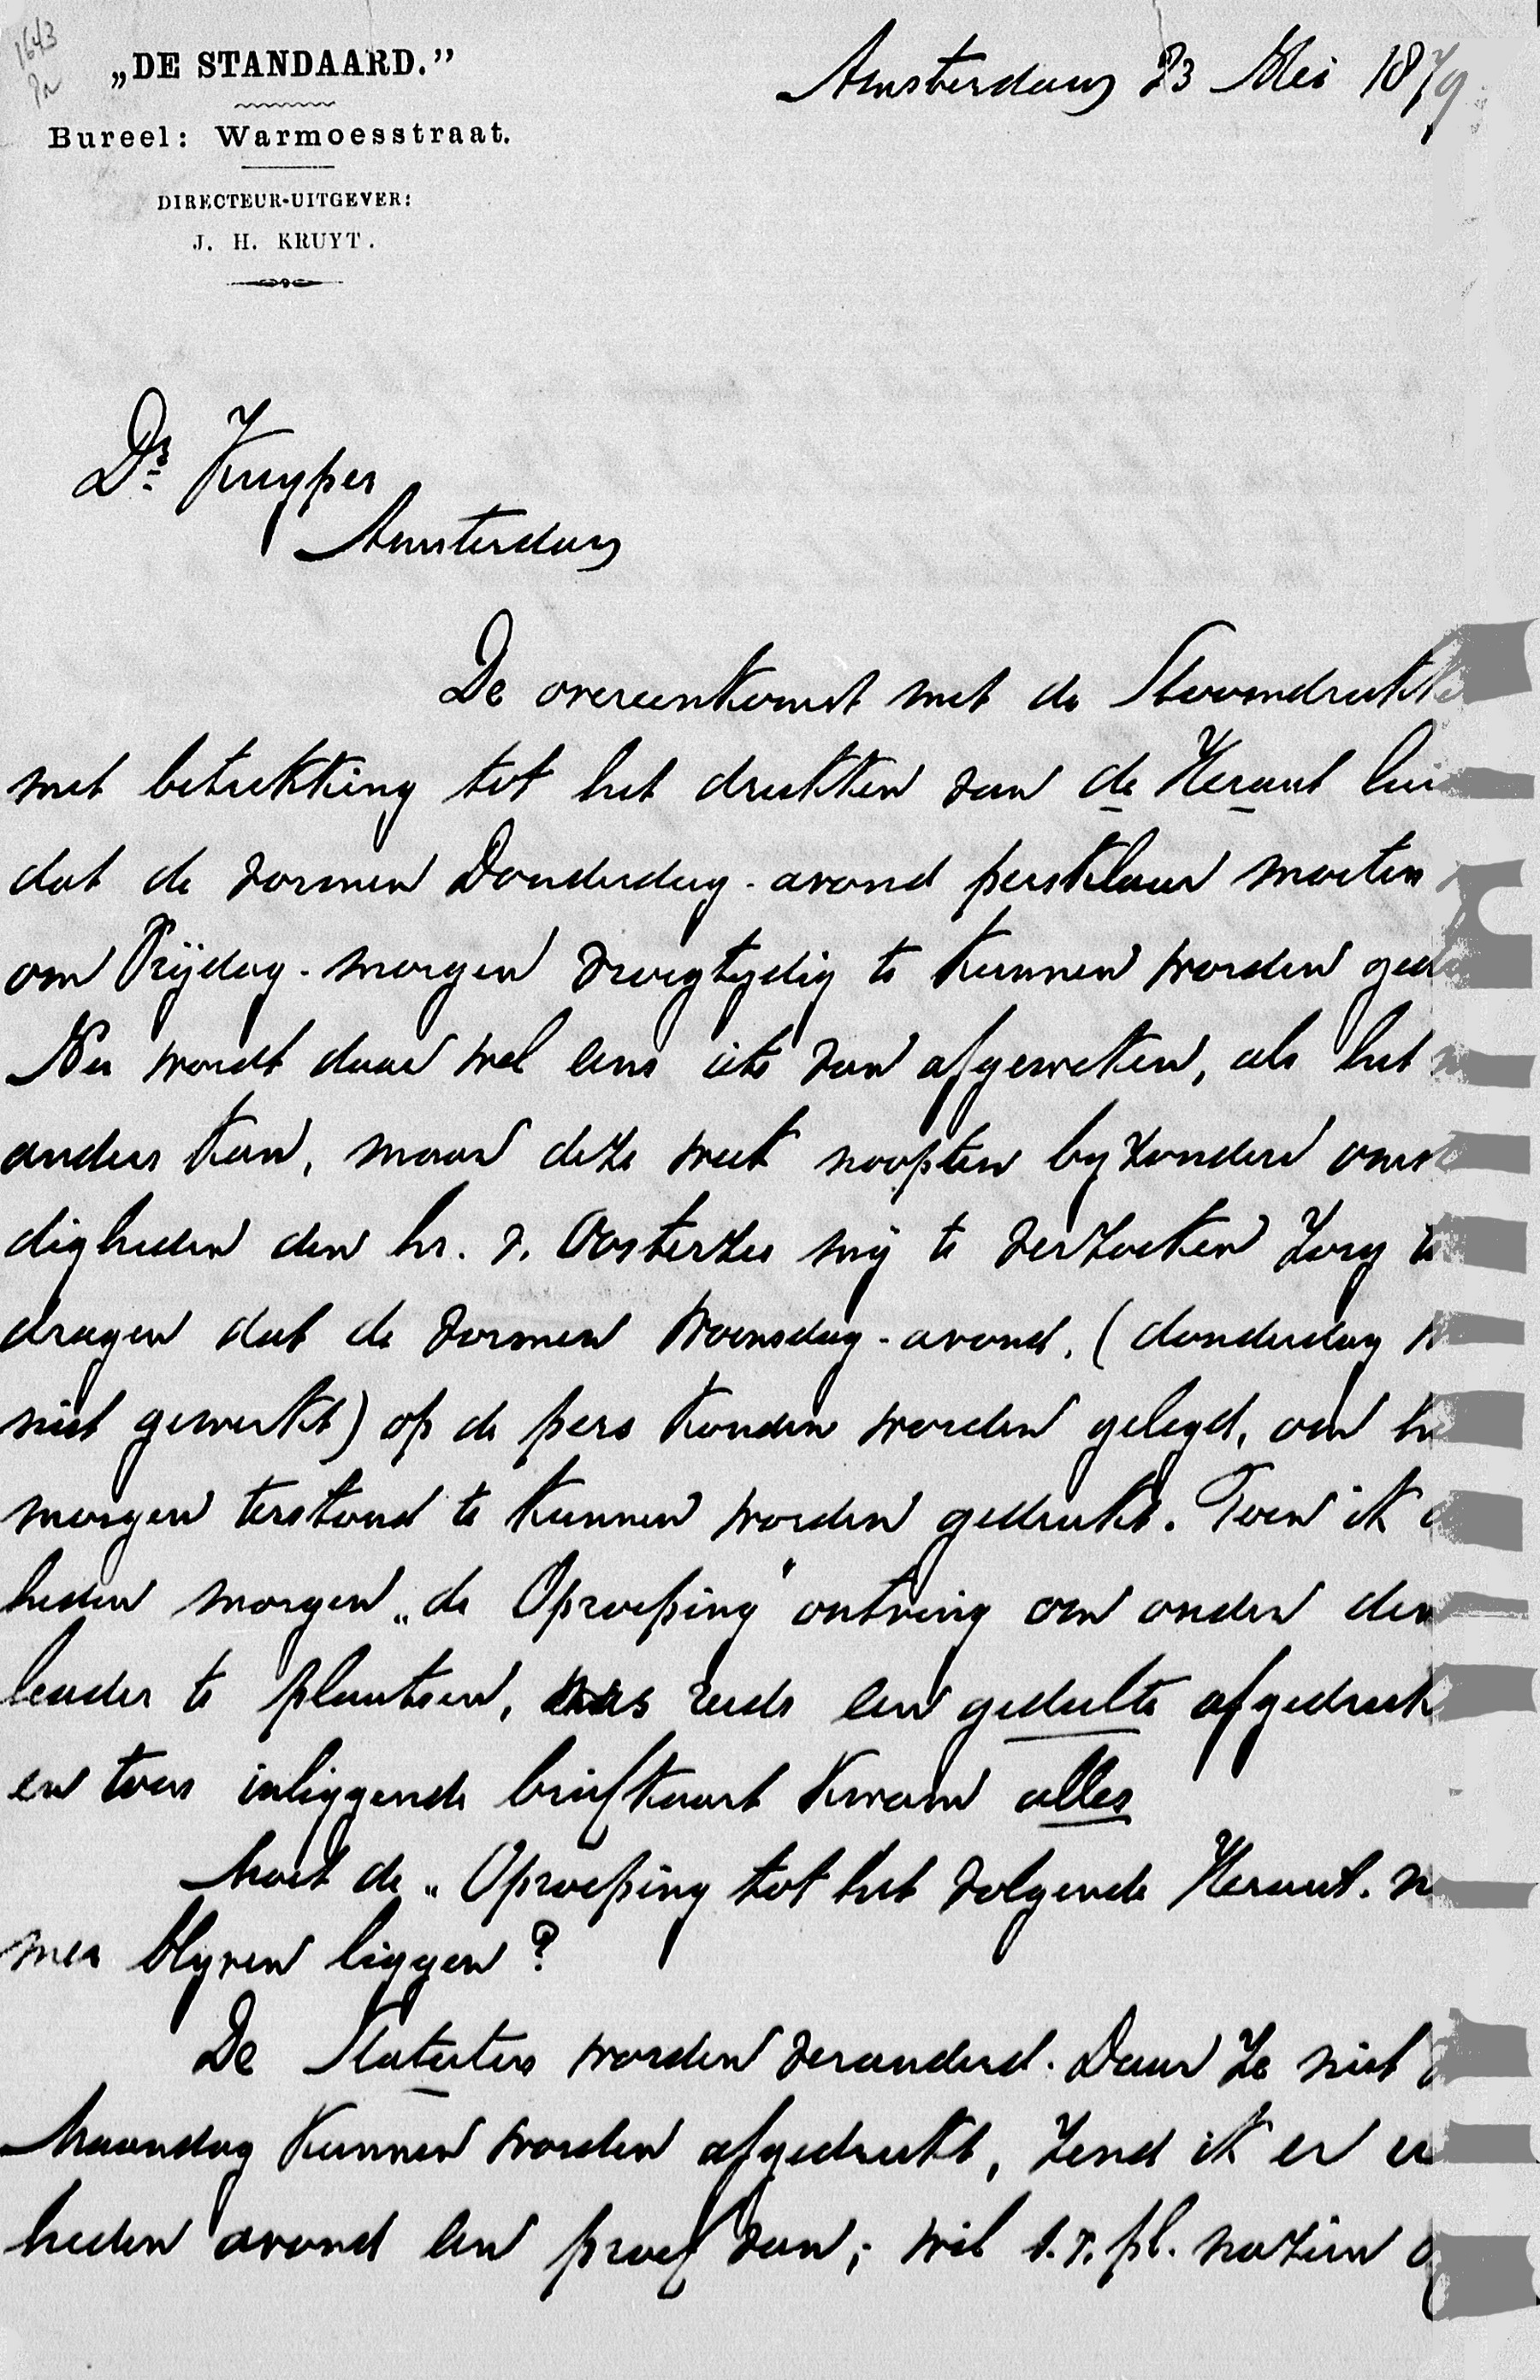 1643
„DE STANDAARD.”
Bureel: Warmoesstraat.
DIRECTEUR-UITGEVER:
J. H. KRUYT.
Amsterdam 23 Mei 1879.
Dr. Kuyper
Amsterdam
De overeenkomst met de Stoomdrukke
met betrekking tot het drukken van de Heraut lui
dat de vormen Donderdag-avond persklaar moeten
om Vrijdag-morgen vroegtydig te kunnen worden ged
Nu wordt daar wel eens iets van afgeweken, als het
anders kan, maar deze week noopten byzondere oms
digheden den hr. v. Oosterzee mij te verzoeken zorg te
dragen dat de vormen Woensdag-avond, (donderdag w
niet gewerkt) op de pers konden worden gelegd, om he
morgen terstond te kunnen worden gedrukt. Toen ik
heden morgen „de Oproeping” ontving om onder den
leader te plaatsen, was reeds een gedeelte afgedruk
en toen inliggende briefkaart kwam alles
Moet de „Oproeping tot het volgende Heraut. n
mer blyven liggen?
De Statuten worden veranderd. Daar ze niet
Maandag kunnen worden afgedrukt, zend ik er u
heden avond een proef van; wil s.v.pl. nazien o